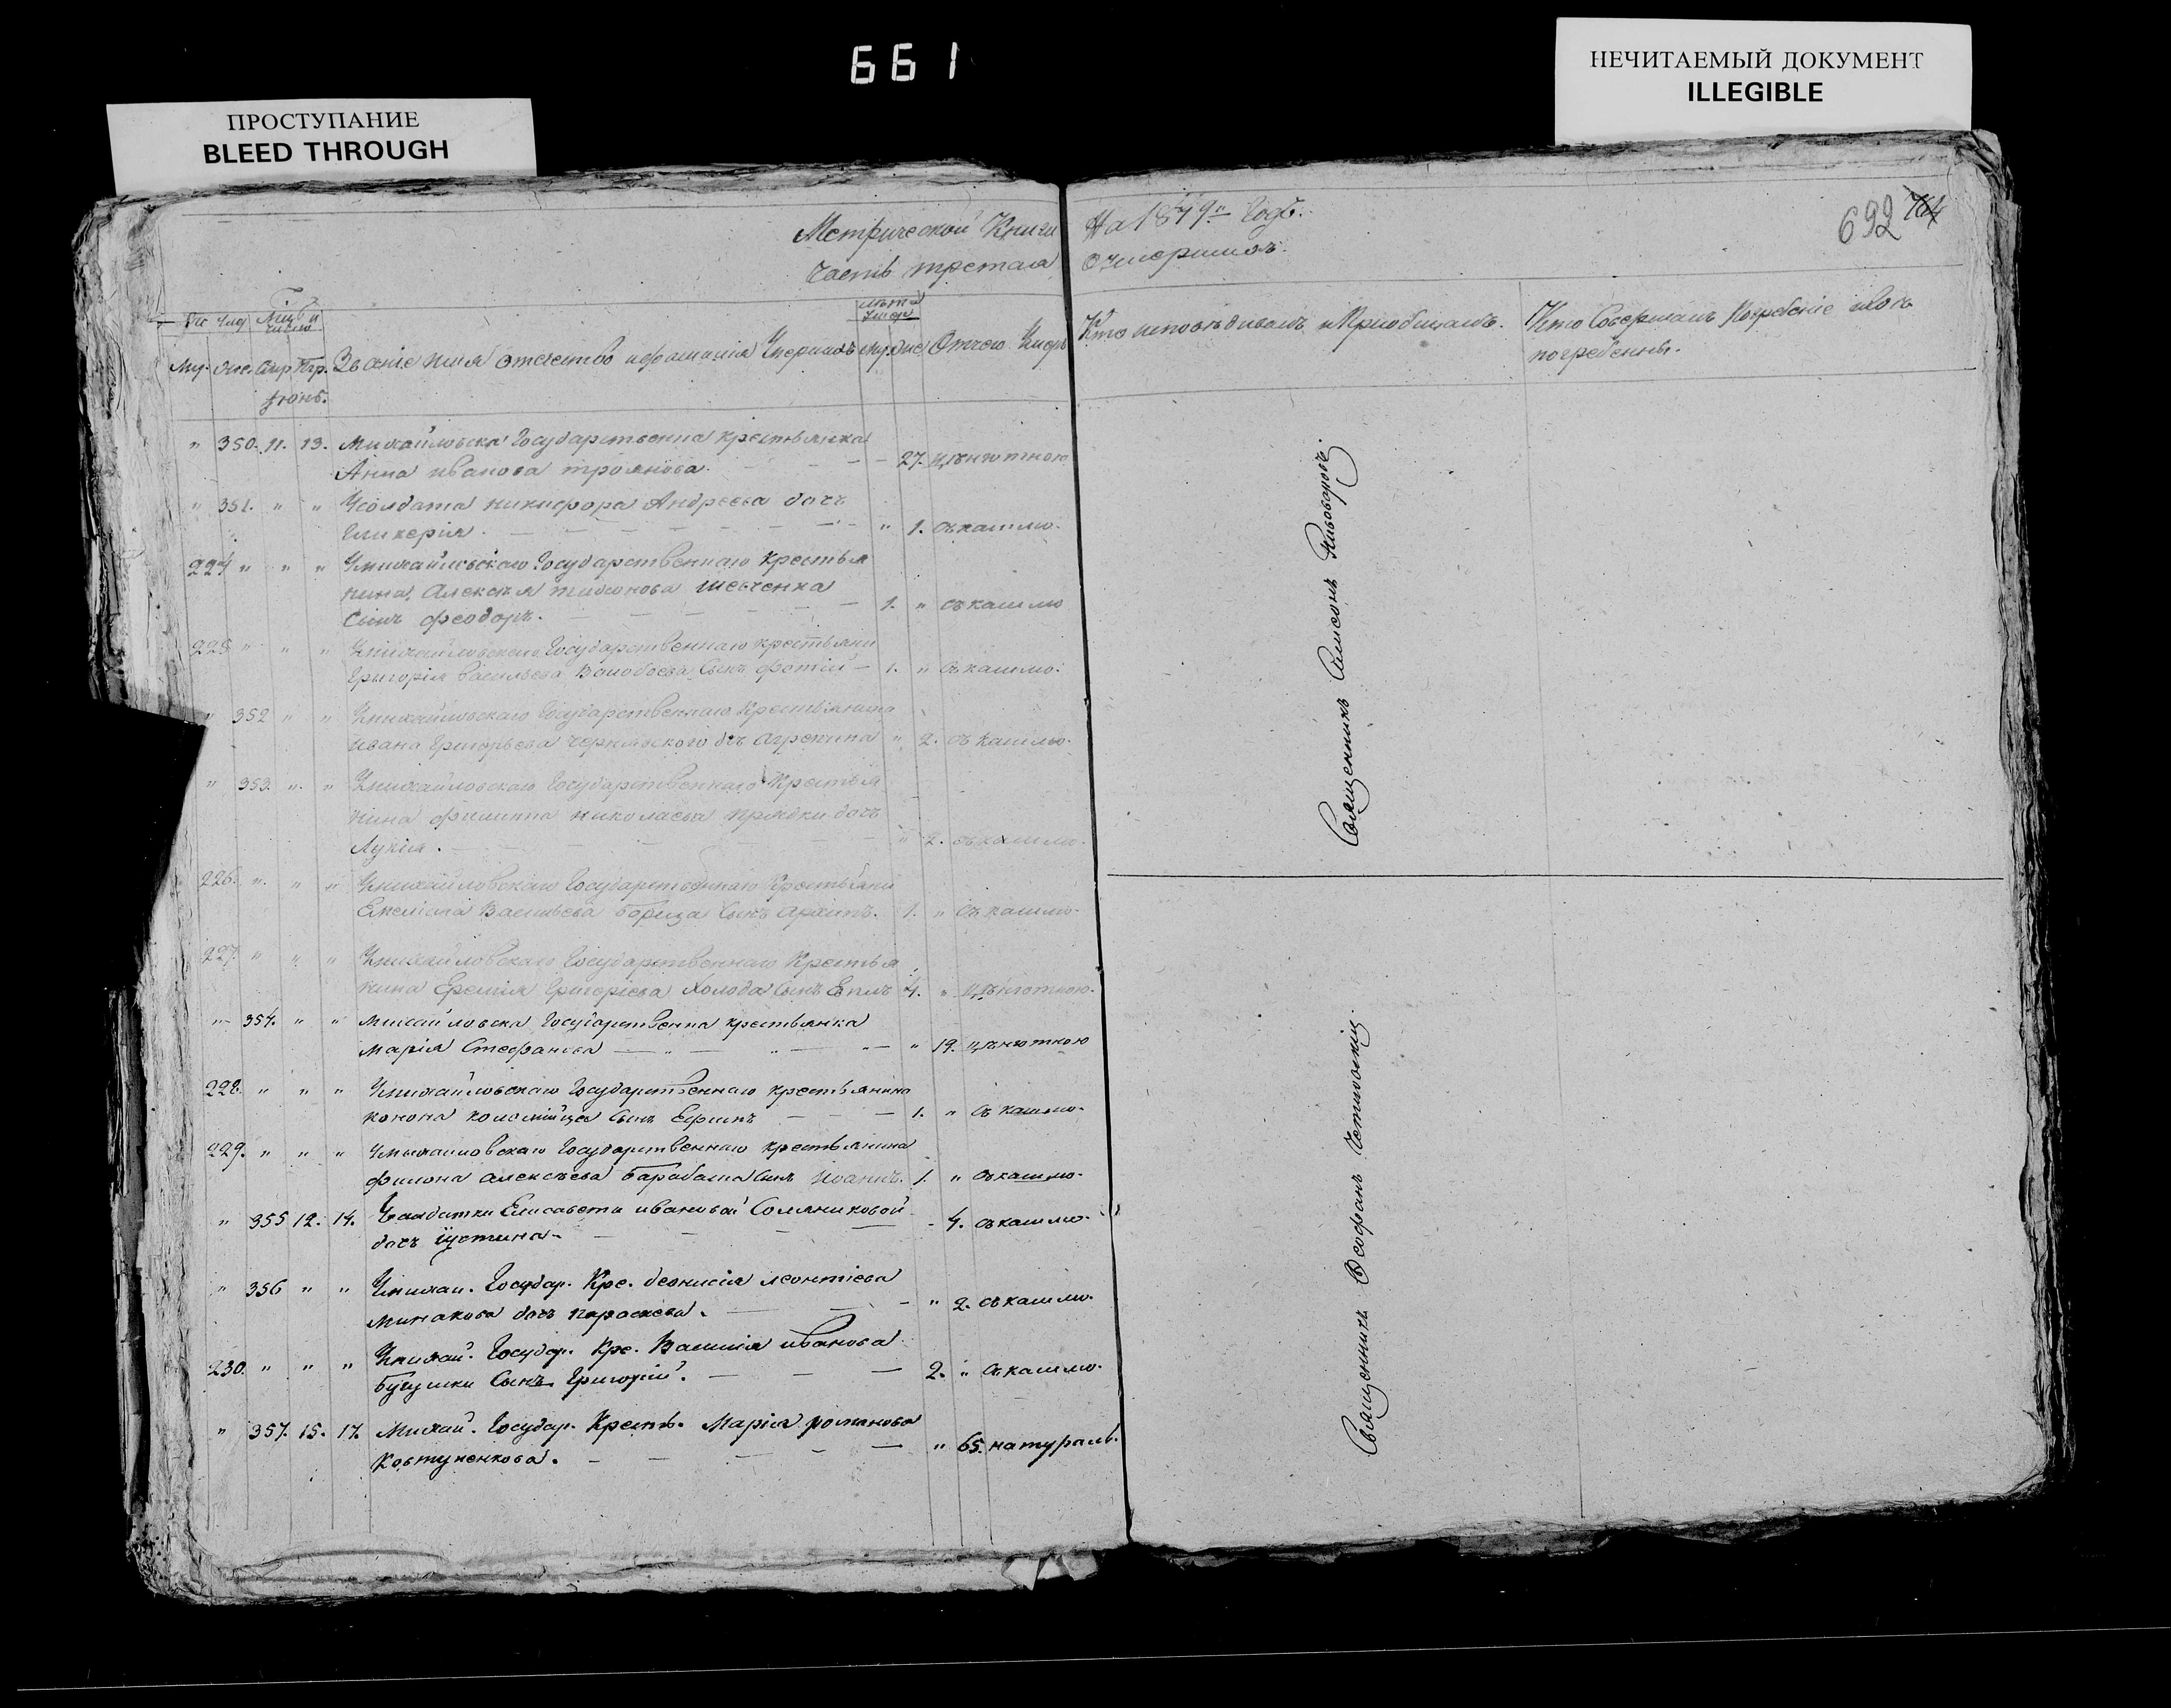 661
ПРОСТУПАНИЕ
BLEED THROUGH
НЕЧИТАЕМЫЙ ДОКУМЕНТ
ILLEGIBLE
692 764
Метрической Книги На 1849й Годъ.
Часть третая О умершихъ.
Му. Жіе. Умр. Погр. Званіе имя отчество и фамилія Умершихъ Му. Же. Отчего Умеръ
Кто исповѣдывалъ и Приобщалъ. Кто Совершалъ Погребеніе и гдѣ
погребенны.
Іюнь.
" 350. 11. 13. Михайловска Государственна крестьянка
Анна иванова троянова. — — — 27. чахоткою
" 351. " " У солдата никифора Андреева дочь
Гликерія. — — — " 1. съ кашлю.
224 " " " У михайловскаго Государственнаго крестья
нина Алексѣя шевченка
Сынъ феодоръ. — — — 1. " съ кашлю
225 " " " У михайловскаго Государственнаго крестьяни
Григорія Васильева Сынъ фотій — 1. " съ кашлю.
" 352 " " У михайловскаго Государственнаго Крестьянина
ивана Григорьева черкаского дочь агрепина " 2. съ кашлю.
" 353. " " У михайловскаго Государственнаго Крестья
нина филиппа николаева прядки дочь
Лукія. — — — " 2. съ кашлю.
226. " " " У михайловскаго Государственнаго Крестьяни
Васильева Сынъ архипъ. 1. " съ кашлю.
227. " " " У михайловскаго Государственнаго Крестья
нина Еремія Григоріева Холода Сынъ 4. "
" 354. " " михайловска Государственна крестьянка
Марія Стефанова — — — " 19.
228. " " " У михайловскаго Государственнаго крестьянина
конона коломійца Сынъ Ефимъ — — — 1. " съ кашлю.
229. " " " У михаиловскаго Государственнаго крестьянина
филона алексѣева барабаша Сынъ Иоаннъ. 1. " съ кашлю.
" 355 12. 14. У салдатки Елисавети ивановой Соляниковой
дочь іустина — — — 4. съ кашлю.
" 356 " " У михаи. Государ. Кре. деонисія леонтіева
минакова дочь параскева. — — — " 2. съ кашлю.
230. " " " У михай. Государ. Кре. Василія иванова
Сынъ Григорій. — — — 2. " съ кашлю.
" 357. 15. 17. Михай. Государ. Кресть. Марія романова
Ковтуненкова. — — — " 65. натураль.
Священникъ Самсонъ Пивоваровъ.
Священникъ Феофанъ